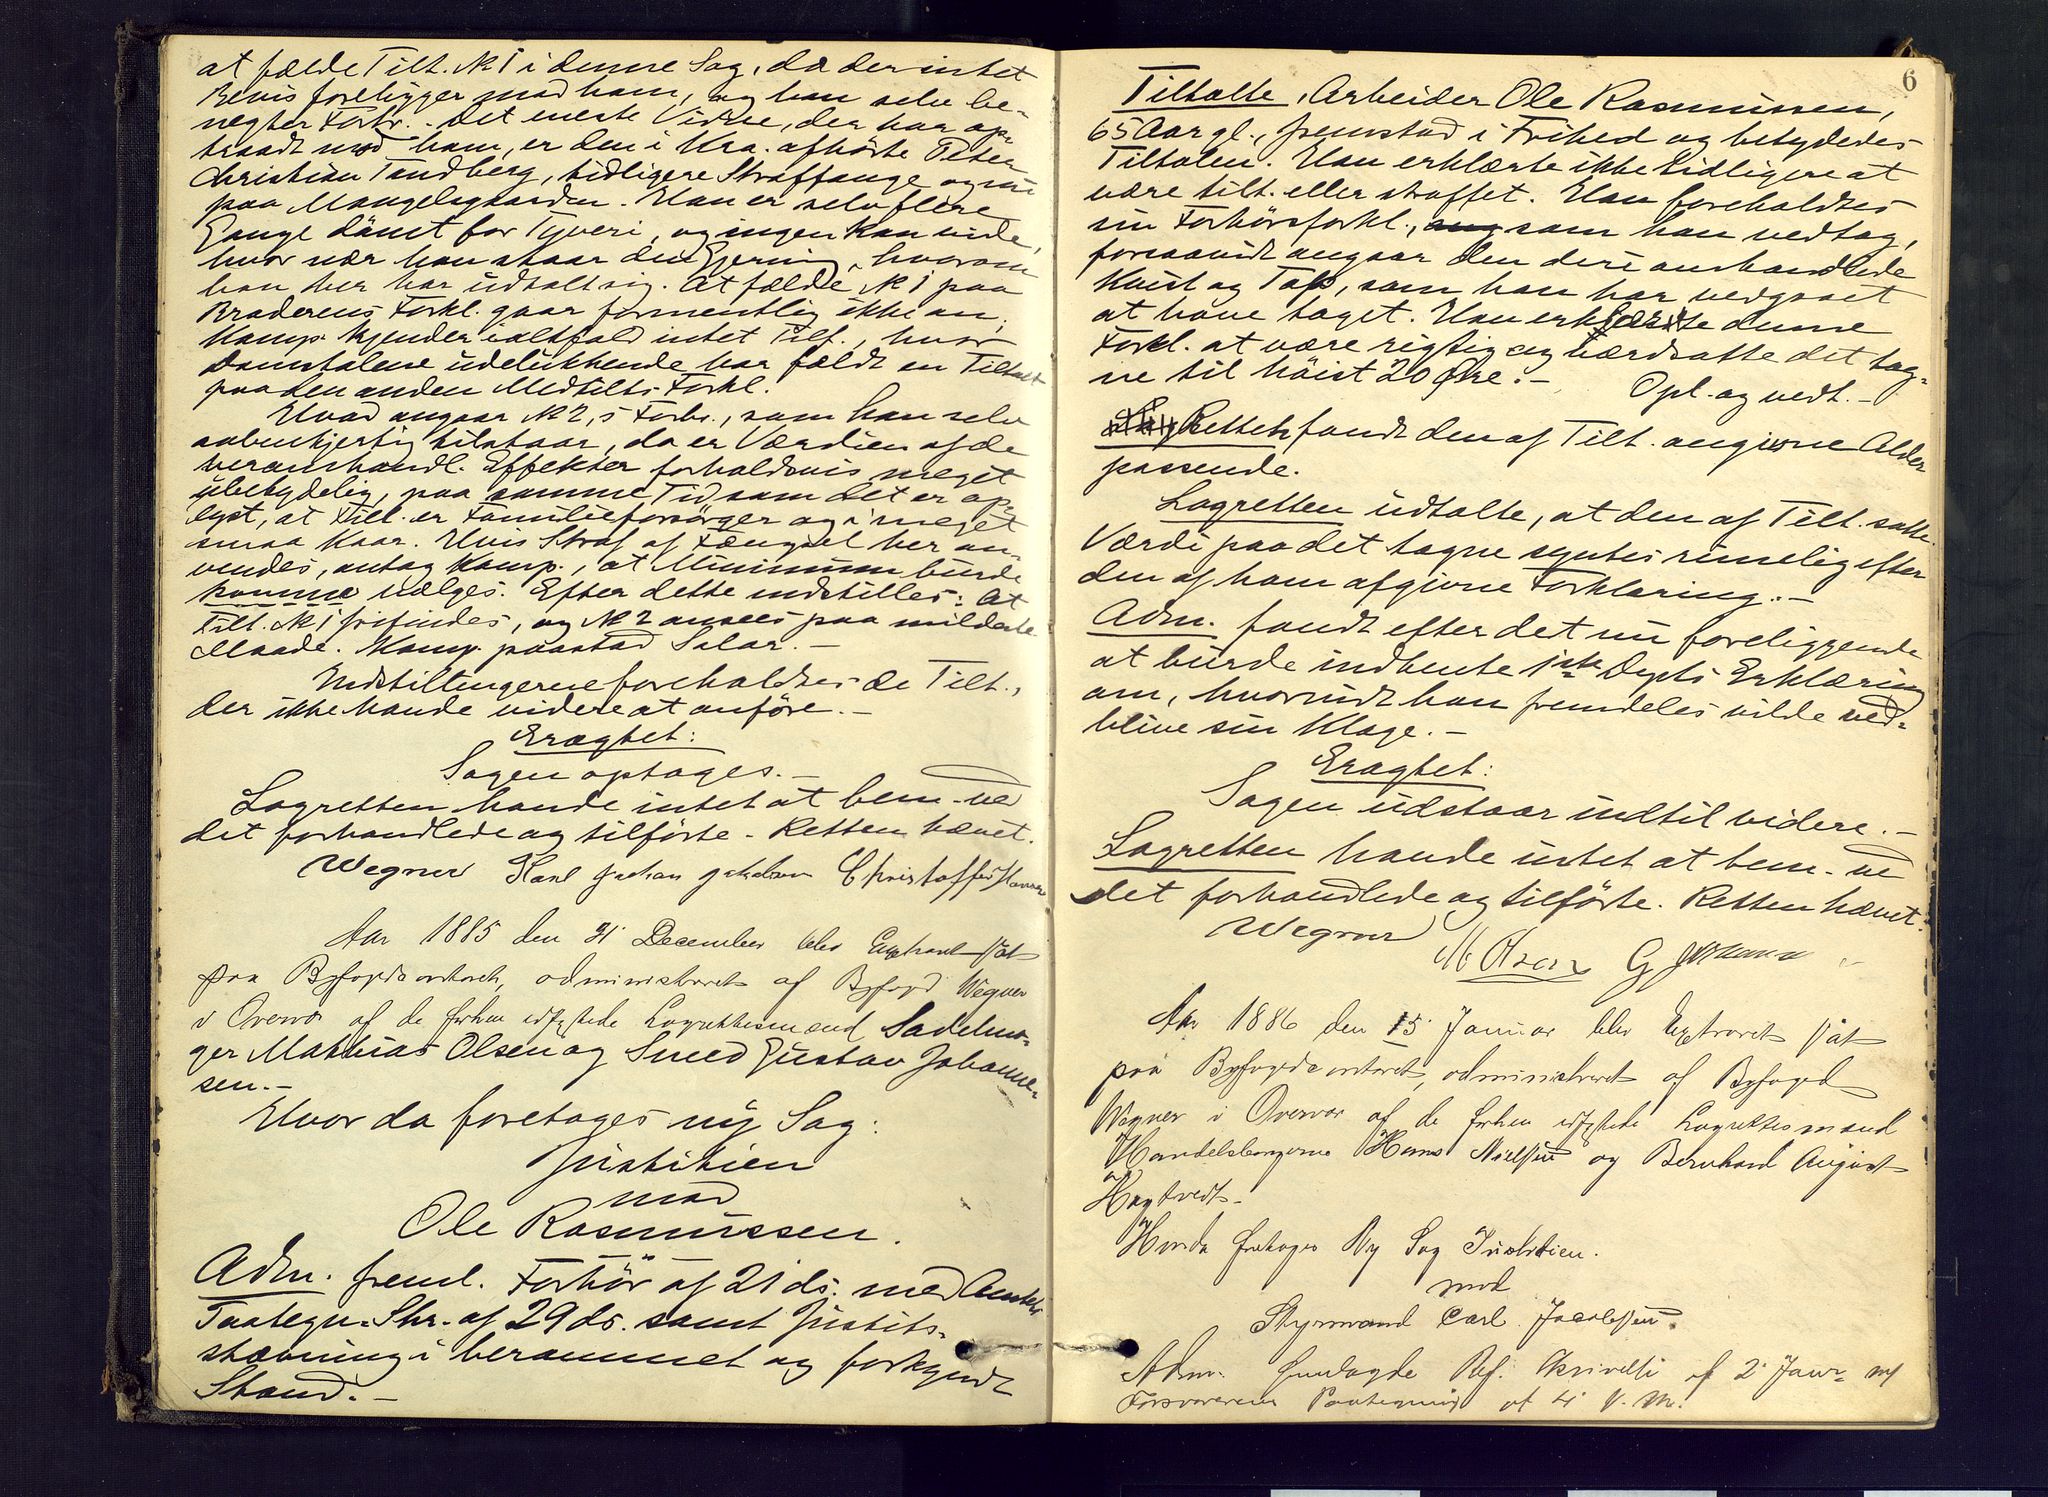 at fælde Tilt. No 1 i denne Sag, da der intet
Bevis foreligger mod ham, og han selv be-
negter Forbr. Det eneste Vidne, der har op-
traadt mod ham, er den i Kra. afhørte Peter
Christian Tandberg, tidligere Straffange og nu
paa Mangelsgaarden. Han er selv flere
Gange dömt for Tyveri, og ingen kan vide,
hvor nær han staar den Gjerning, hvorom
han her har udtalt sig. At fælde No 1 paa
Broderens Forkl. gaar formentlig ikke an;
Komp. kjender ialtfald intet Tilf., hvor
Domstolene udelukkende har fældt en Tiltalt
paa den anden Medtilts Forkl.
Hvad angaar No 2,s Forbr., som han selv
aabenhjertig tilstaar, da er Værdien af de
omhandl. Effekter forholdsvis meget
ubetydelig, paa samme Tid som det er op-
lyst, at Tilt. er Familieforsörger og i meget
smaa Kaar. Hvis Straf af Fængsel her an-
vendes, antog Komp., at Minimum burde
komme vælges. Efter dette indstilles: At
Tilt. No 1 frifindes, og No 2 ansees paa mildeste
Maade. Komp. paastod Salær. —
Indstillingerne foreholdtes de Tilt.,
der ikke havde videre at anföre. —
Eragtet:
Sagen optages. —
Lagretten havde intet at bem. ved
det forhandlede og tilförte. Retten hævet.
Wegner Karl Johan Christoffer Hansen
Aar 1885 den 31 December blev Extraret sat
paa Byfogedcontoret, administreret af Byfoged Wegner
i Overvær af de forhen edfæstede Lagrettesmænd Sadelma-
ger Mathias Olsen og Smed Gustav Johanne-
sen. —
Hvor da foretoges ny Sag:
Justitien
mod
Ole Rasmussen.
Adm. freml. Forhör af 21 ds. med Amtets
Paategn. Skr. af 29 ds. samt Justits-
stævning i berammet og forkyndt
Stand. —
6
Tiltalte, Arbeider Ole Rasmussen,
65 Aar gl., fremstod i Frihed og betydedes
Tiltalen. Han erklærte ikke tidligere at
være tilt. eller straffet. Han foreholdtes
sin Forhörsforkl., som han vedtog,
forsaavidt angaar den deri omhandlede
Kvist og Top, som han har vedgaaet
at have taget. Han erklærte denne
Forkl. at være rigtig og værdsatte det tag-
ne til höist 20 Øre. — Opl. og vedt. —
Retten fandt den af Tilt. angivne Alder
passende.
Lagretten udtalte, at den af Tilt. satte
Værdi paa det tagne syntes rimelig efter
den af ham afgivne Forklaring. —
Adm. fandt efter det nu foreliggende
at burde indhente 1ste Depts Erklæring
om, hvorvidt han fremdeles vilde ved-
blive sin Klage. —
Eragtet:
Sagen udstaar indtil videre. —
Lagretten havde intet at bem. ved
det forhandlede og tilförte. Retten hævet.
Wegner M Olsen G Johanns
Aar 1886 den 15 Januar blev Extraret sat
paa Byfogedcontoret, administreret af Byfoged
Wegner i Overvær af de forhen edfæstede Lagrettesmænd
Handelsborgerne Hans Nielsen og Bernhard August
Hagtvedt. —
Hvorda foretoges Ny Sag Justitien.
mod
Styrmand Carl Jacobsen.
Adm. fremlagde Ref. Skrivelse af 2 Januar m/
Forsvarerens Paategning af 4 s. M.